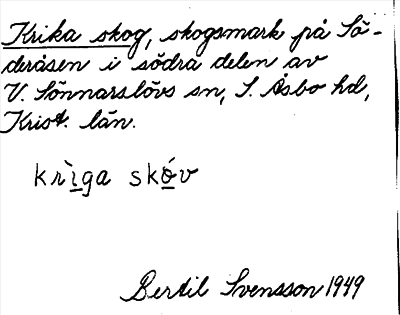 Krika skog, skogsmark på Sö-
deråsen i södra delen av
V. Sönnarslövs sn, S. Åsbo hd,
Krist. län.
krìga skóv
Bertil Svensson 1949